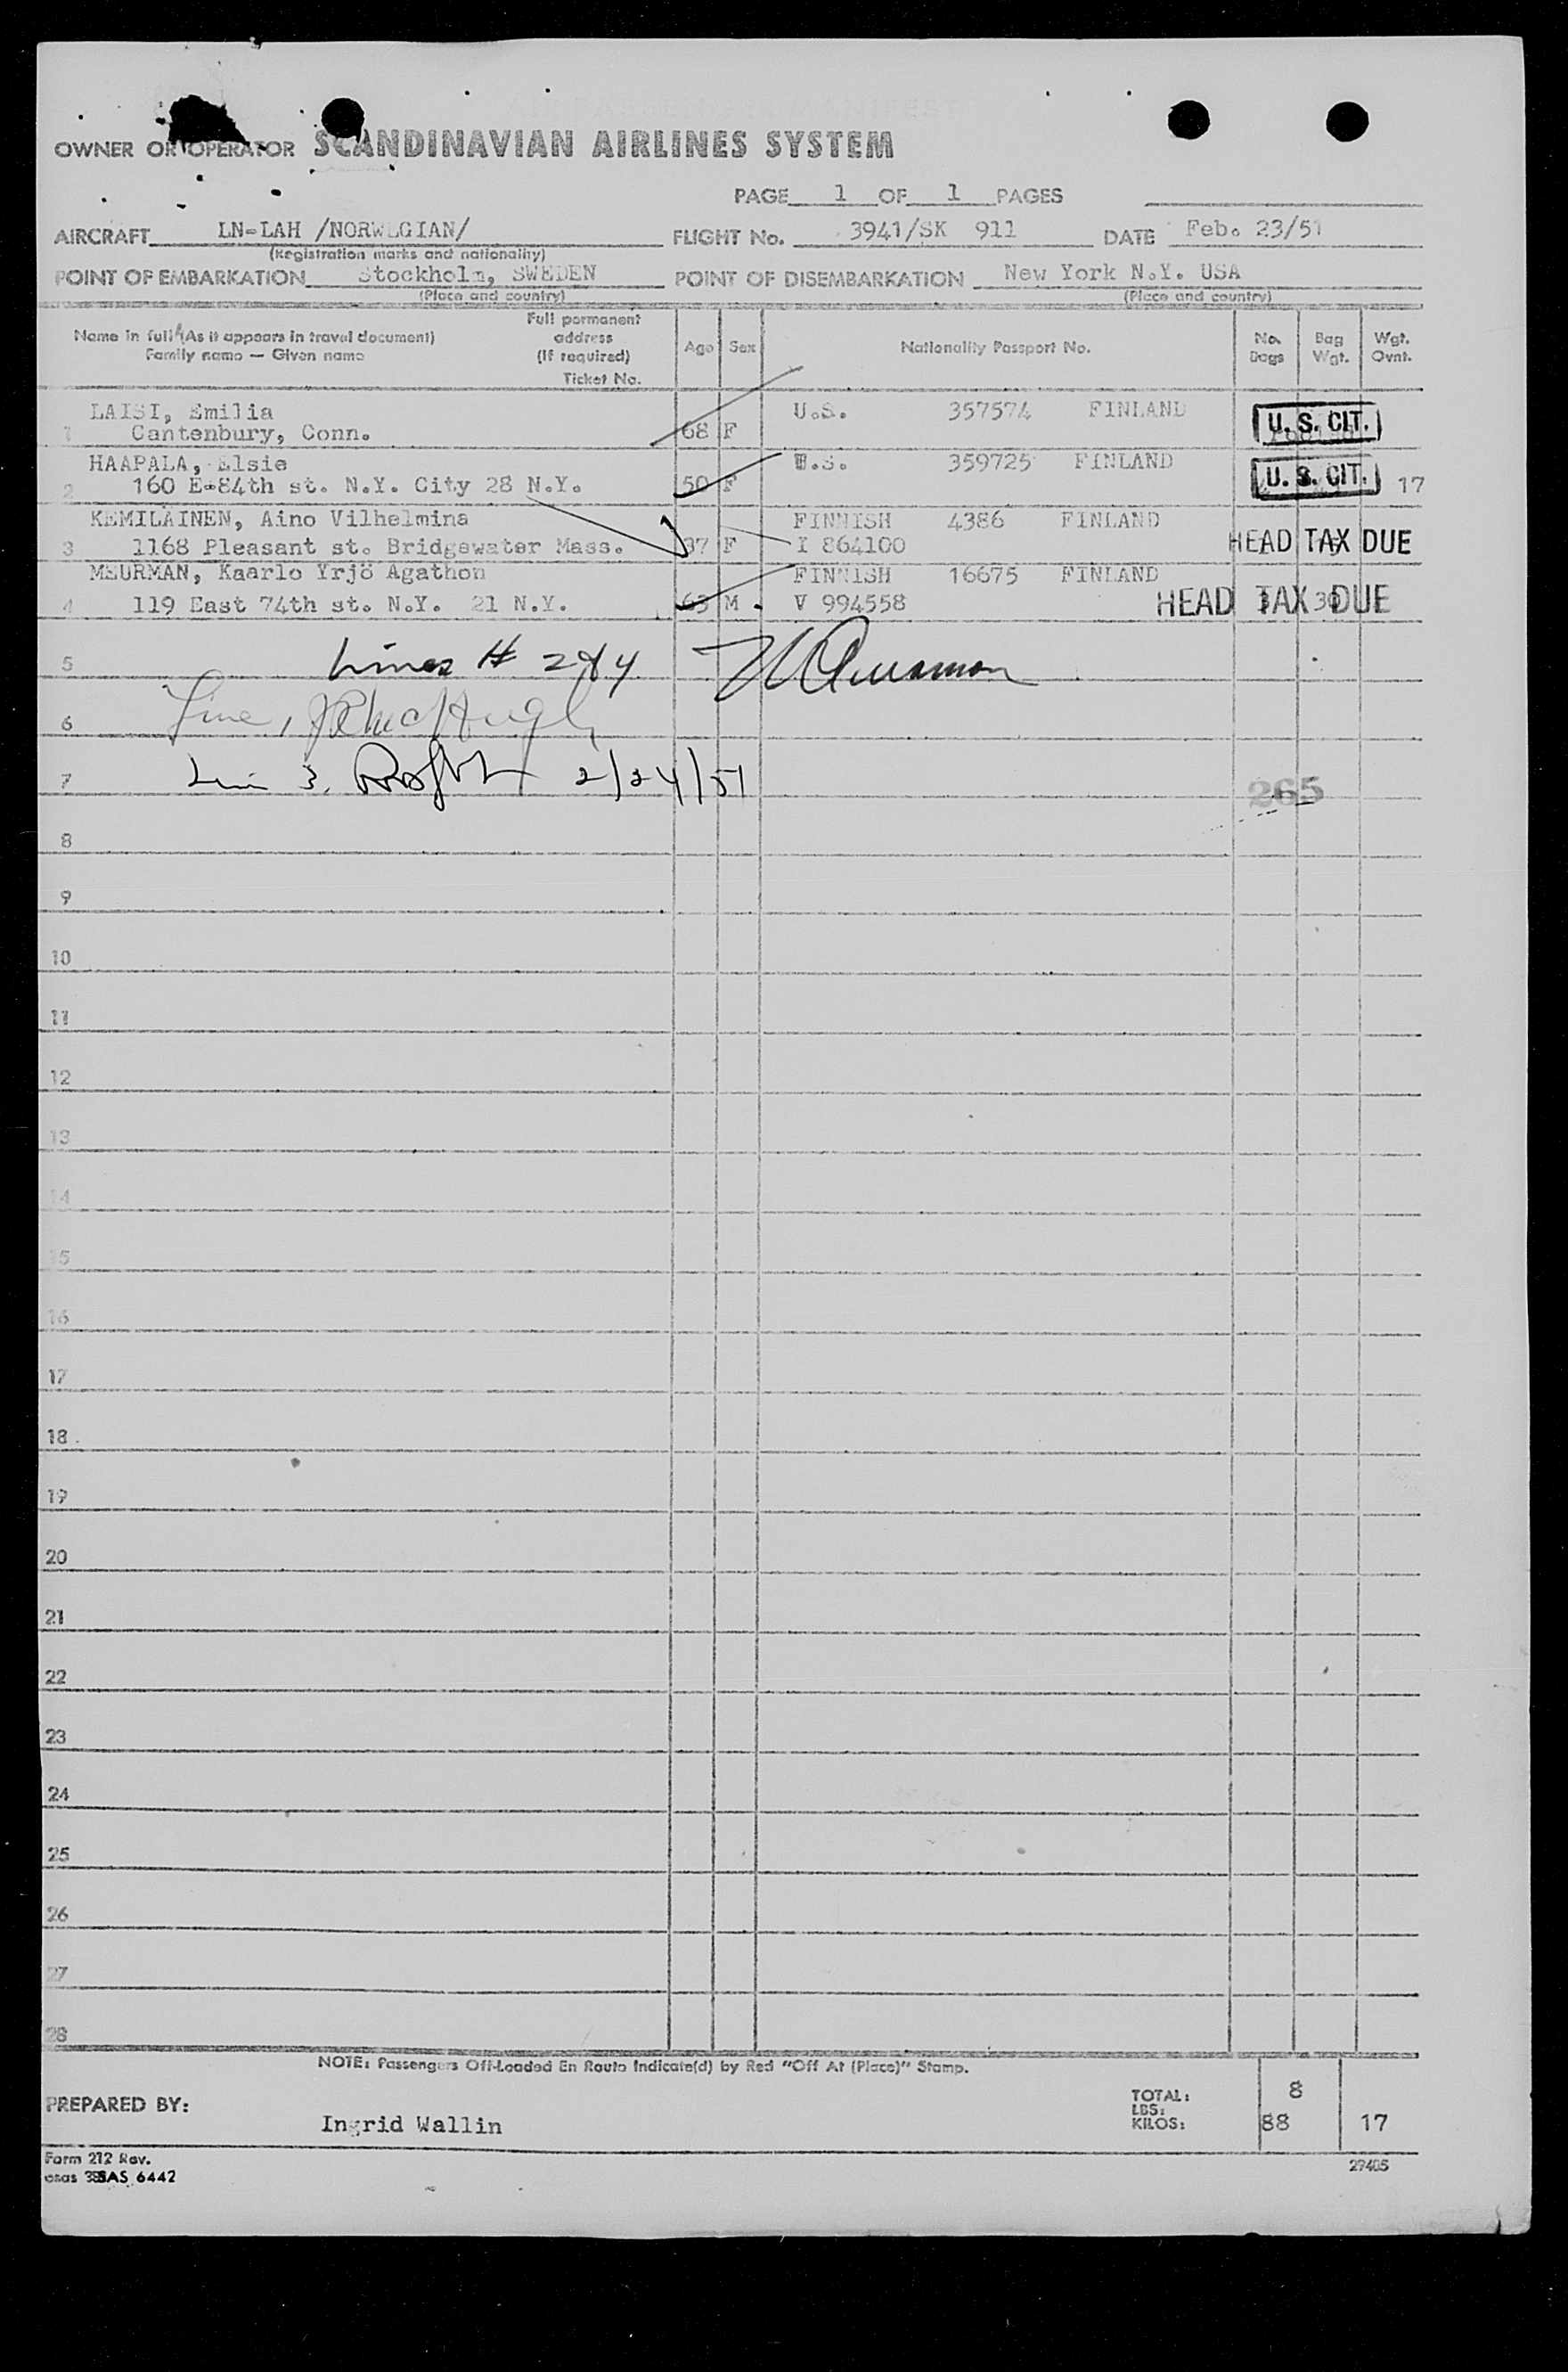 OWNER OR OPERATOR SCANDINAVIAN AIRLINES SYSTEM
PAGE 1 OF 1 PAGES
AIRCRAFT LN-LAH /NORWEGIAN/ FLIGHT No. 3941/SK 911 DATE Feb. 23/51
(Registration marks and nationality)
POINT OF EMBARKATION Stockholm, SWEDEN POINT OF DISEMBARKATION New York N.Y. USA
(Place and country) (Place and country)
Name in full (As it appears in travel document) Family name — Given name
Full permanent address (If required) Ticket No.
Age Sex Nationality Passport No. No. Bags Bag Wgt. Wgt. Ovnt.
LAISI, Emilia U.S. 357574 FINLAND U. S. CIT.
1 Cantenbury, Conn. 68 F
HAAPALA, Elsie U.S. 359725 FINLAND U. S. CIT.
2 160 E-84th st. N.Y. City 28 N.Y. 50 F 17
KEMILAINEN, Aino Vilhelmina FINNISH 4386 FINLAND
3 1168 Pleasant st. Bridgewater Mass. 37 F I 864100 HEAD TAX DUE
MEURMAN, Kaarlo Yrjö Agathon FINNISH 16675 FINLAND
4 119 East 74th st. N.Y. 21 N.Y. 63 M V 994558 HEAD TAX DUE
5 Lines # 2&4
6 Line 1
7 Line 3. 2/24/51 265
8
9
10
11
12
13
14
15
16
17
18
19
20
21
22
23
24
25
26
27
28
NOTE: Passengers Off-Loaded En Route Indicate(d) by Red "Off At (Place)" Stamp.
PREPARED BY: Ingrid Wallin
TOTAL: 8
LBS:
KILOS: 88 17
Form 212 Rev.
SAS 6442
29405